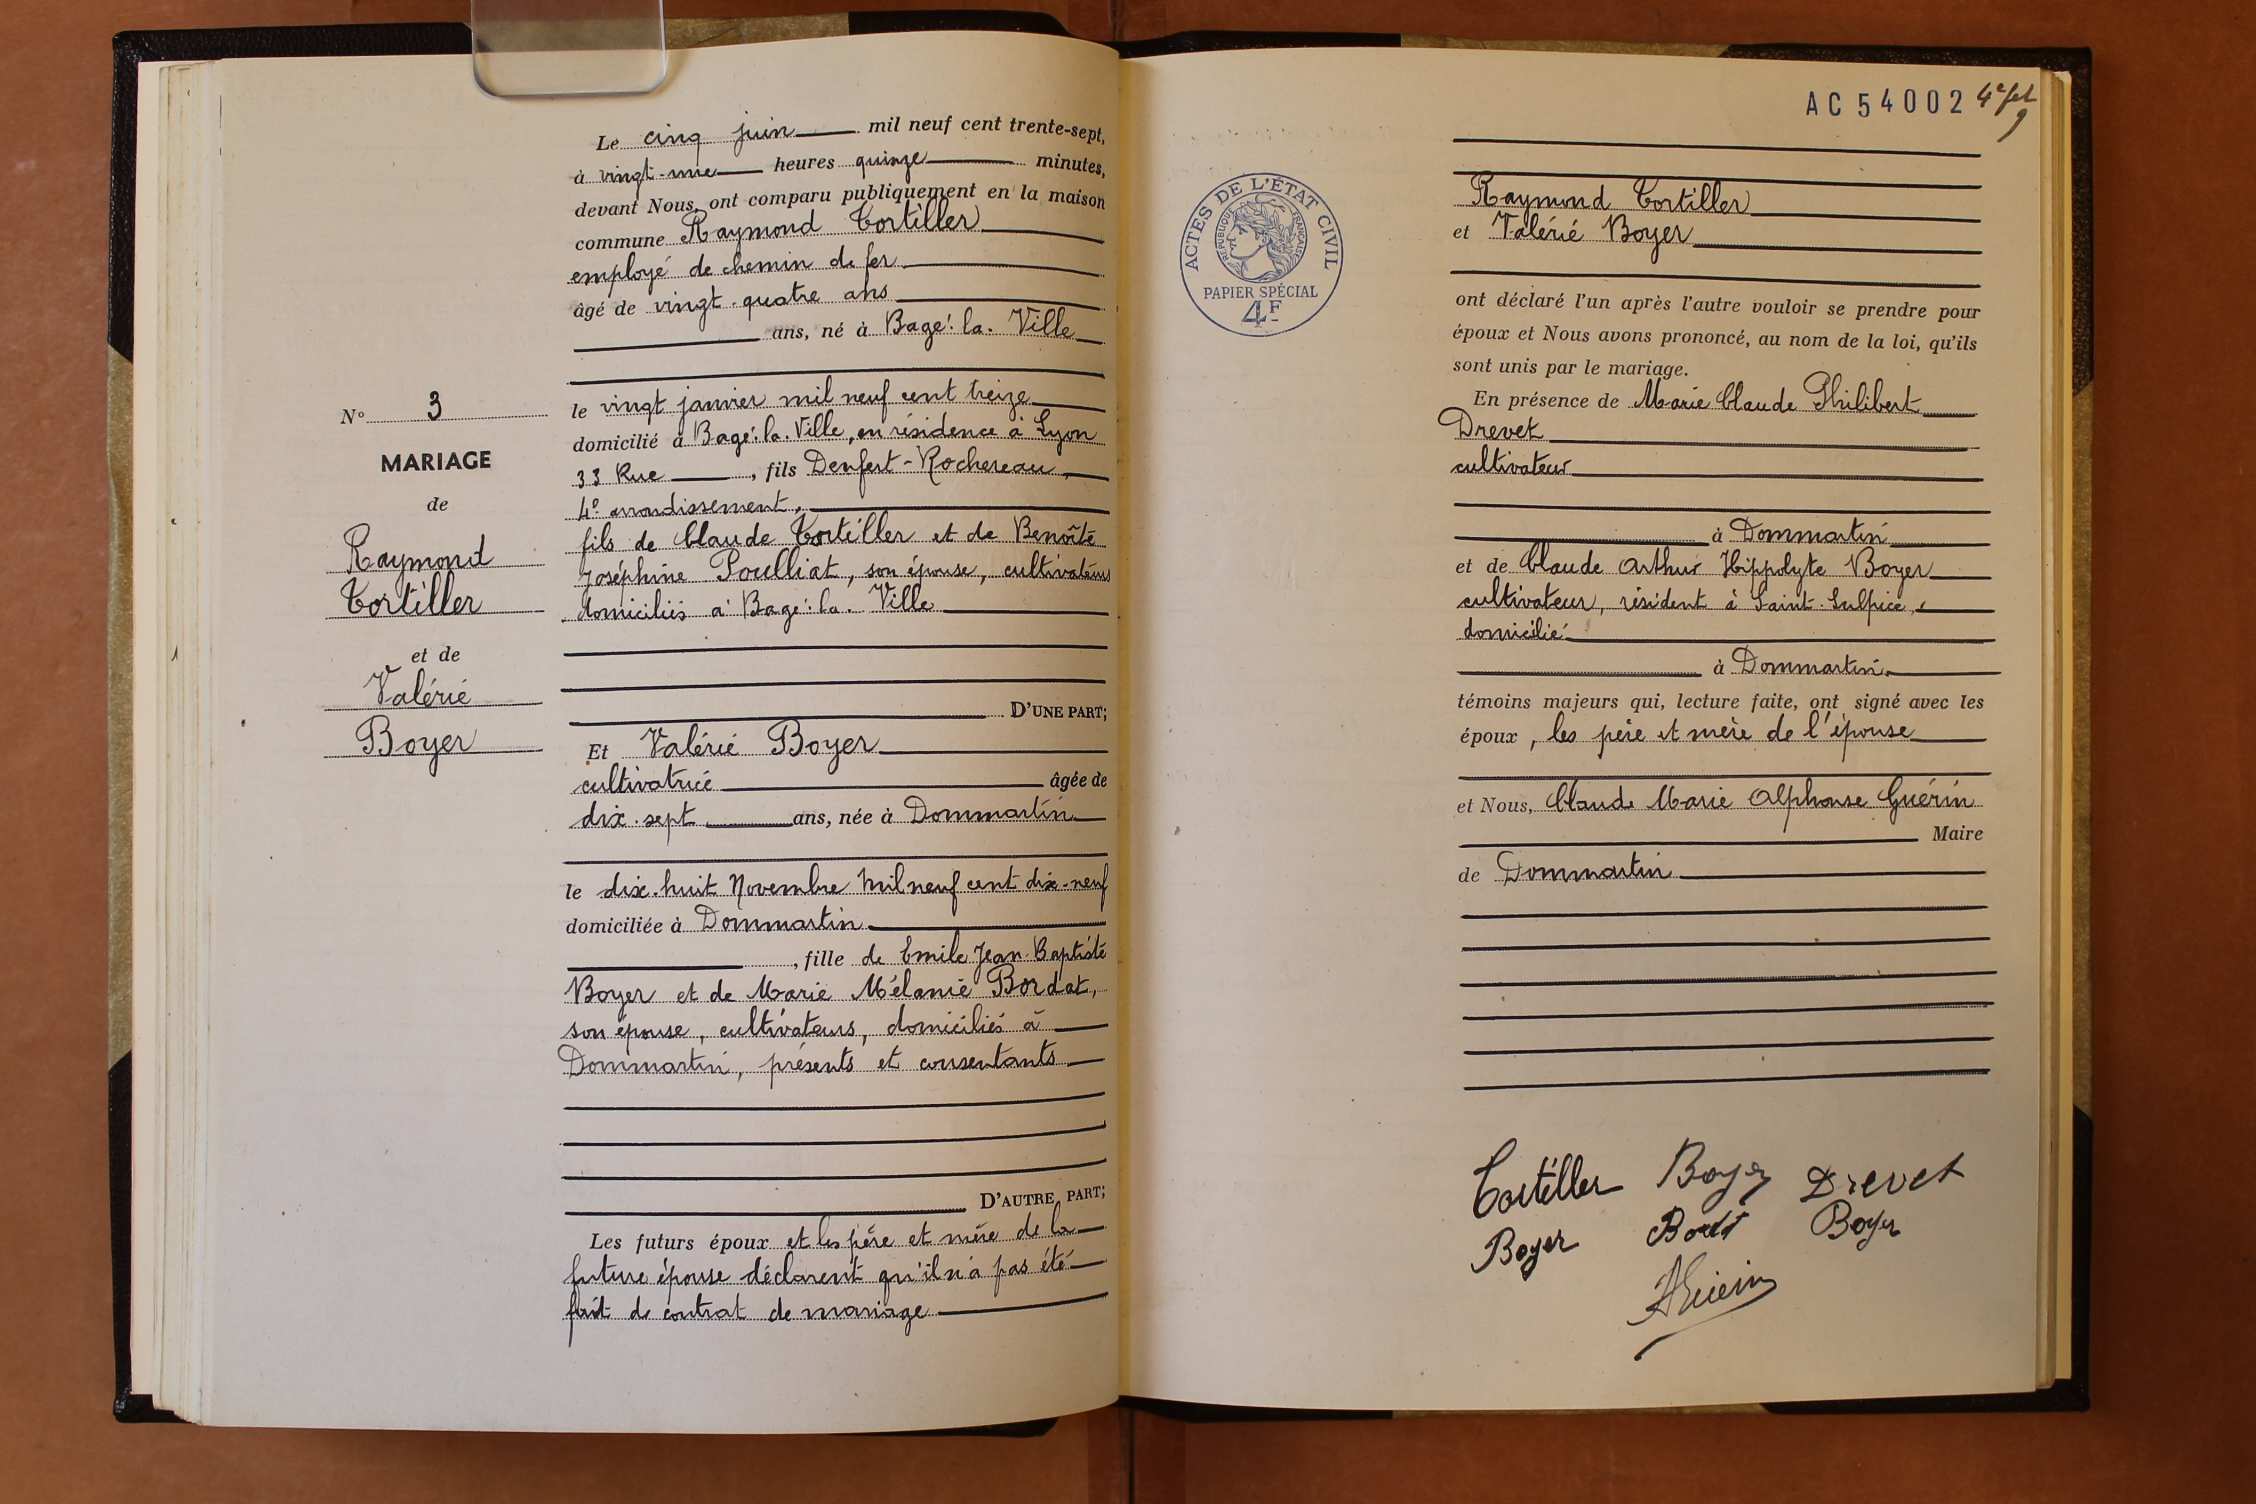 N° 3
MARIAGE
de
Raymond
Tortiller
et de
Valérie
Boyer
Le cinq juin mil neuf cent trente-sept,
à vingt-une heures quinze minutes,
devant Nous, ont comparu publiquement en la maison
commune Raymond Tortiller
employé de chemin de fer
âgé de vingt-quatre ans
ans, né à Bagé-la-Ville
le vingt janvier mil neuf cent treize
domicilié à Bagé-la-Ville, en résidence à Lyon
33 Rue , fils Denfert-Rochereau,
4e arrondissement,
fils de Claude Tortiller et de Benoîte
Joséphine Poulliat, son épouse, cultivateurs
domiciliés à Bagé-la-Ville
D'UNE PART;
Et Valérie Boyer
cultivatrice âgée de
dix-sept ans, née à Dommartin
le dix-huit Novembre mil neuf cent dix-neuf
domiciliée à Dommartin
, fille de Emile Jean-Baptiste
Boyer et de Marie Mélanie Bordat,
son épouse, cultivateurs, domiciliés à
Dommartin, présents et consentants
D'AUTRE PART;
Les futurs époux et les père et mère de la
future épouse déclarent qu'il n'a pas été
fait de contrat de mariage
AC 54002
ACTES DE L'ÉTAT CIVIL
RÉPUBLIQUE FRANÇAISE
PAPIER SPÉCIAL
4F
Raymond Tortiller
et Valérie Boyer
ont déclaré l'un après l'autre vouloir se prendre pour
époux et Nous avons prononcé, au nom de la loi, qu'ils
sont unis par le mariage.
En présence de Marie Claude Philibert
Drevet
cultivateur
à Dommartin
et de Claude Arthur Hippolyte Boyer
cultivateur, résident à Saint-Sulpice,
domicilié
à Dommartin
témoins majeurs qui, lecture faite, ont signé avec les
époux, les père et mère de l'épouse
et Nous, Claude Marie Alphonse Guérin
Maire
de Dommartin
Tortiller Boyer Drevet
Boyer Boyer
AGuérin